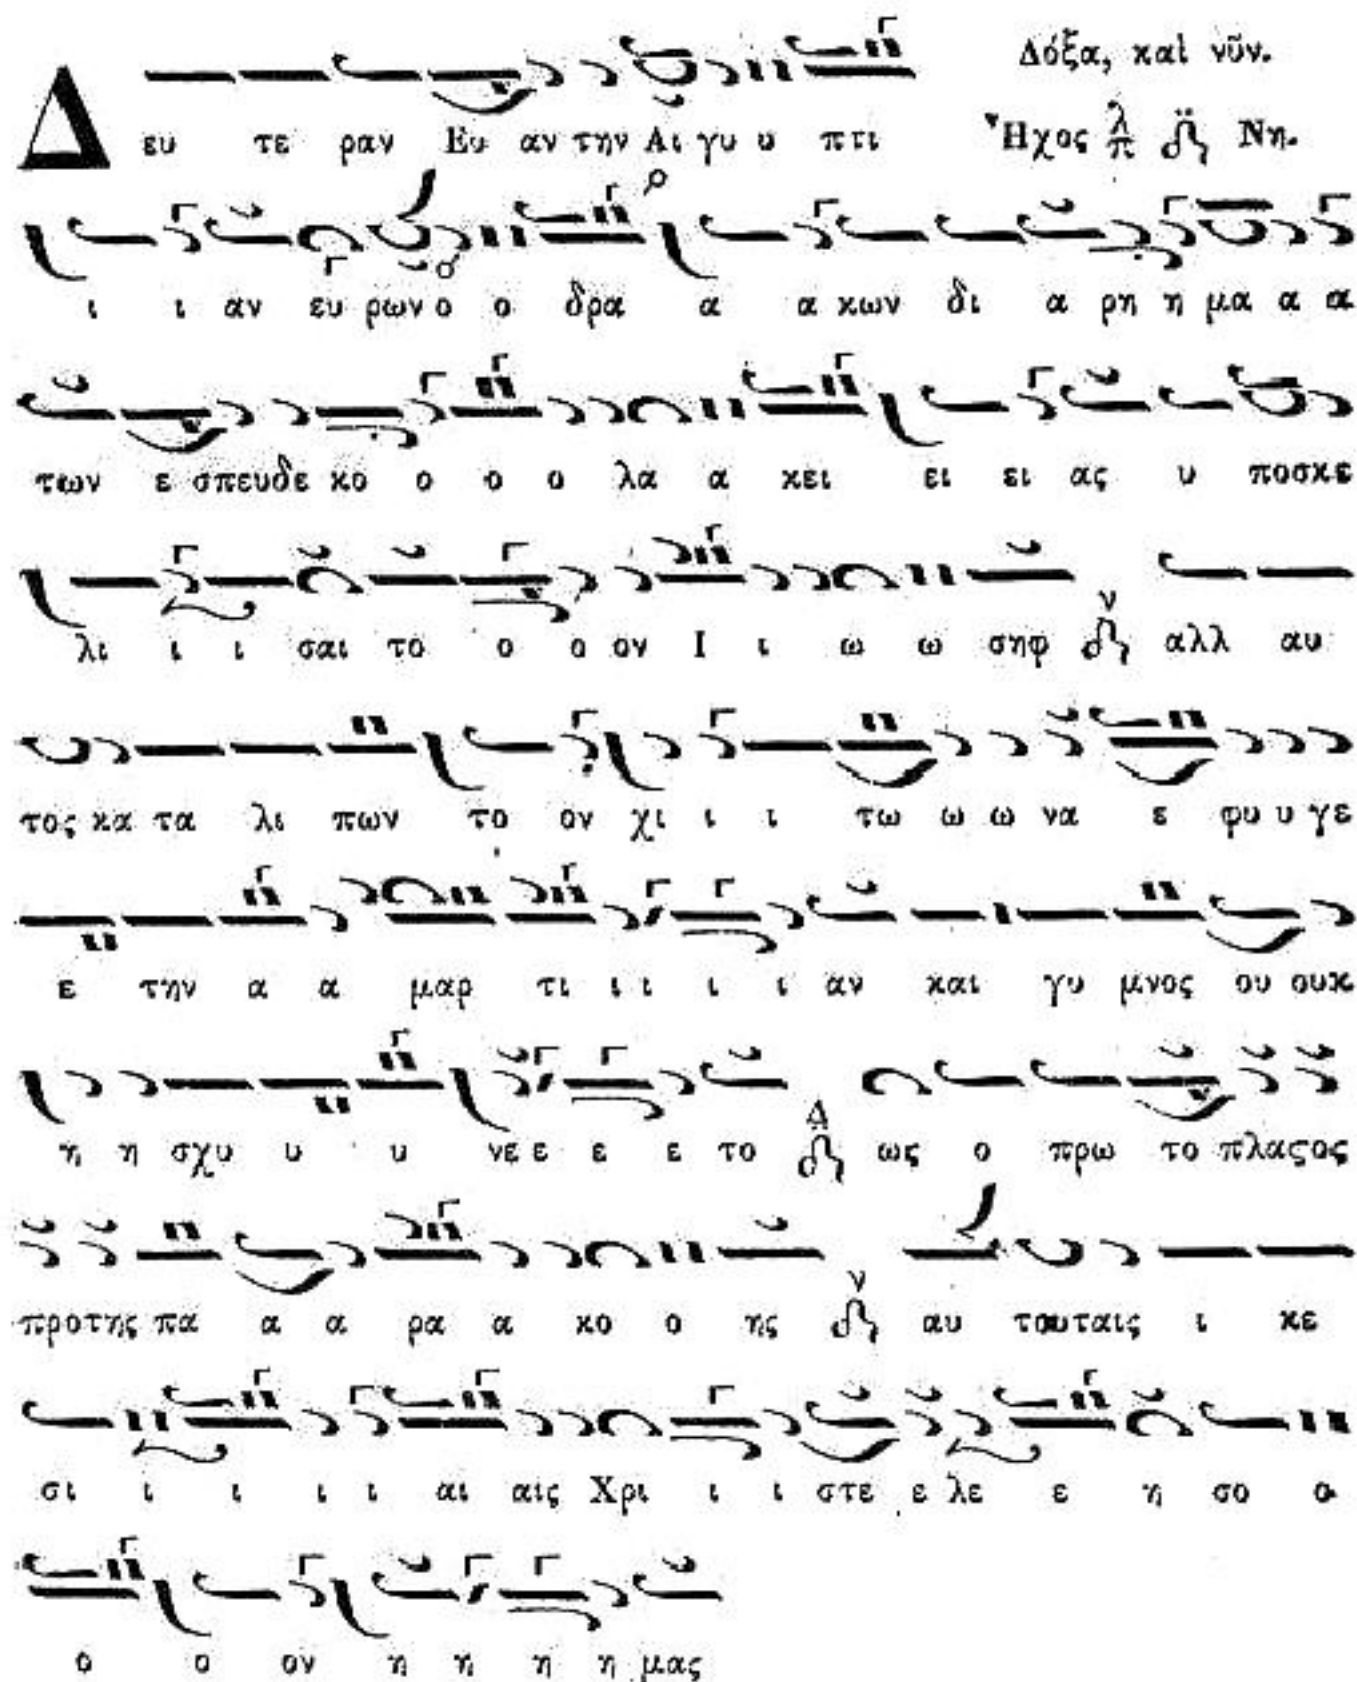 Δόξα, καὶ νῦν.
Δ ευ τε ραν Ευ αν την Αι γυ υ πτι
Ἦχος λ π Νη.
ι ι αν ευ ρων ο ο δρα α α κων δι α ρη η μα α α
των ε σπευδε κο ο ο ο λα α κει ει ει ας υ ποσκε
λι ι ι σαι το ο ο ον Ι ι ω ω σηφ ν αλλ αυ
τος κα τα λι πων το ον χι ι ι τω ω ω να ε φυ υ γε
ε την α α μαρ τι ι ι ι ι αν και γυ μνος ου ουκ
η η σχυ υ υ νε ε ε ε το Δ ως ο πρω το πλαςος
προ της πα α α ρα α κο ο ης ν αυ του ταις ι κε
σι ι ι ι ι αι αις Χρι ι ι στε ε λε ε η σο ο
ο ο ον η η η η μας